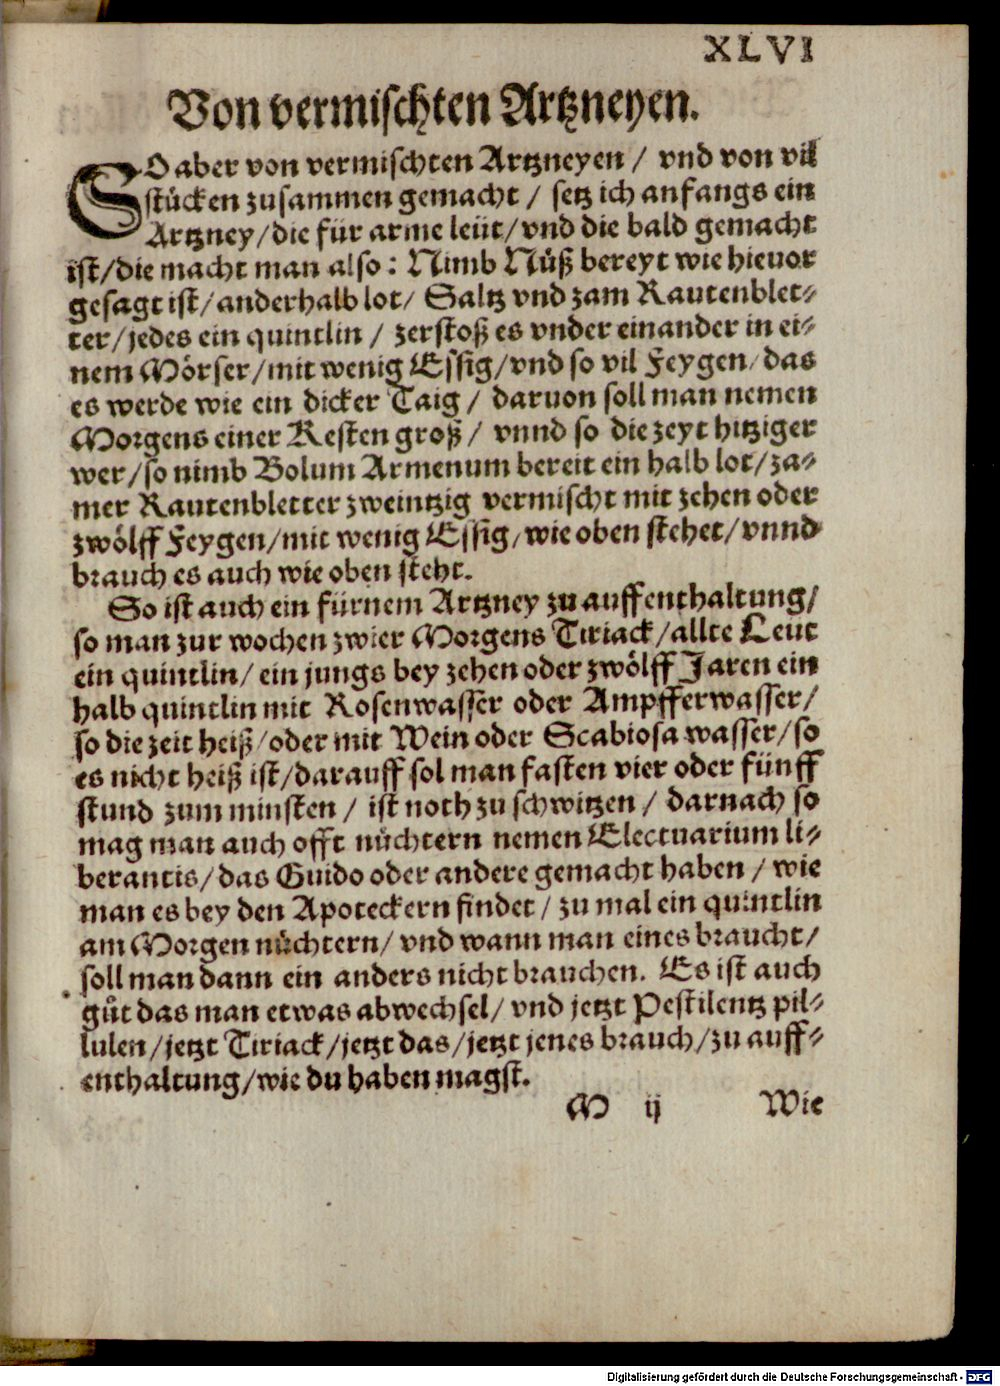 XLVI
Von vermischten Artzneyen.
SO aber von vermischten Artzneyen / vnd von vil
stücken zusammen gemacht / setz ich anfangs ein
Artzney / die für arme leüt / vnd die bald gemacht
ist / die macht man also : Nimb Nüß bereyt wie hieuor
gesagt ist / anderhalb lot / Saltz vnd zam Rautenblet-
ter / jedes ein quintlin / zerstoß es vnder einander in ei-
nem Mörser / mit wenig Essig / vnd so vil Feygen / das
es werde wie ein dicker Taig / daruon soll man nemen
Morgens einer Kesten groß / vnnd so die zeyt hitziger
wer / so nimb Bolum Armenum bereit ein halb lot / za-
mer Rautenbletter zweintzig vermischt mit zehen oder
zwölff Feygen / mit wenig Essig / wie oben stehet / vnnd
brauch es auch wie oben steht.
So ist auch ein fürnem Artzney zu auffenthaltung /
so man zur wochen zwier Morgens Tiriack / allte Leut
ein quintlin / ein jungs bey zehen oder zwölff Jaren ein
halb quintlin mit Rosenwasser oder Ampfferwasser /
so die zeit heiß / oder mit Wein oder Scabiosa wasser / so
es nicht heiß ist / darauff sol man fasten vier oder fünff
stund zum minsten / ist noth zu schwitzen / darnach so
mag man auch offt nüchtern nemen Electuarium li-
berantis / das Guido oder andere gemacht haben / wie
man es bey den Apoteckern findet / zu mal ein quintlin
am Morgen nüchtern / vnd wann man eines braucht /
soll man dann ein anders nicht brauchen. Es ist auch
gůt das man etwas abwechsel / vnd jetzt Pestilentz pil-
lulen / jetzt Tiriack / jetzt das / jetzt jenes brauch / zu auff-
enthaltung / wie du haben magst.
M ij Wie
Digitalisierung gefördert durch die Deutsche Forschungsgemeinschaft - DFG